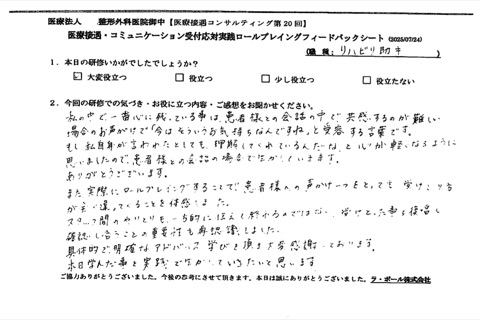 医療法人 整形外科医院御中【医療接遇コンサルティング第20回】
医療接遇・コミュニケーション受付応対実践ロールプレイングフィードバックシート (2025/07/24)
(職種: リハビリ助手)
1.本日の研修いかがでしたでしょうか?
☑ 大変役立つ □ 役立つ □ 少し役立つ □ 役立たない
2.今回の研修での気づき・お役に立つ内容・ご感想をお聞かせください。
私の中で一番心に残っている事は、患者様との会話の中で、共感するのが難しい
場合のお声がけで「今はそういうお気持ちなんですね」と受容する言葉です。
もし私自身が言われたとしても、理解してくれているんだな、と心が軽くなるように
思いましたので、患者様との会話の場合で生かしていきます。
ありがとうございます。
また実際にロールプレイングすることで、患者様への声かけ一つをとっても、受け取り方
が全く違っていることを体感しました。
スタッフ間のやりとりも、一方的に伝えて終わるのではなく、受けとった事を復唱し
確認し合うことの重要性も再認識しました。
具体的で明確なアドバイス、学びを頂き大変感謝しております。
本日学んだ事を実践で生かしていきたいと思います。
ご協力ありがとうございました。今後の参考にさせて頂きます。本日は誠にありがとうございました。ラ・ポール株式会社